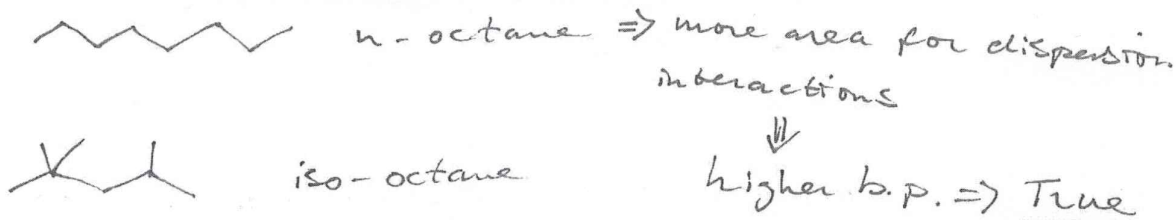 n-octane ⇒ more area for dispersion
interactions
⇓
iso-octane higher b.p. ⇒ True